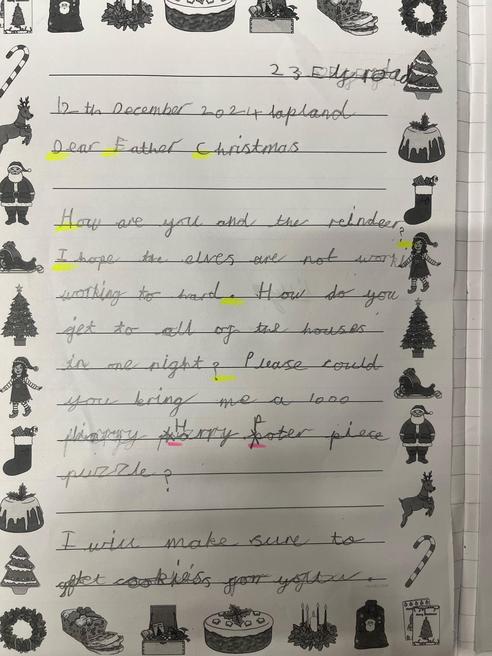 23 Ely road
12th December 2024 lapland
Dear Father Christmas
How are you and the reindeer?
I hope the elves are not work
working to hard. How do you
get to all of the houses
in one night? Please could
you bring me a 1000
Harry Poter piece
puzzle?
I will make sure to
cookies for you.